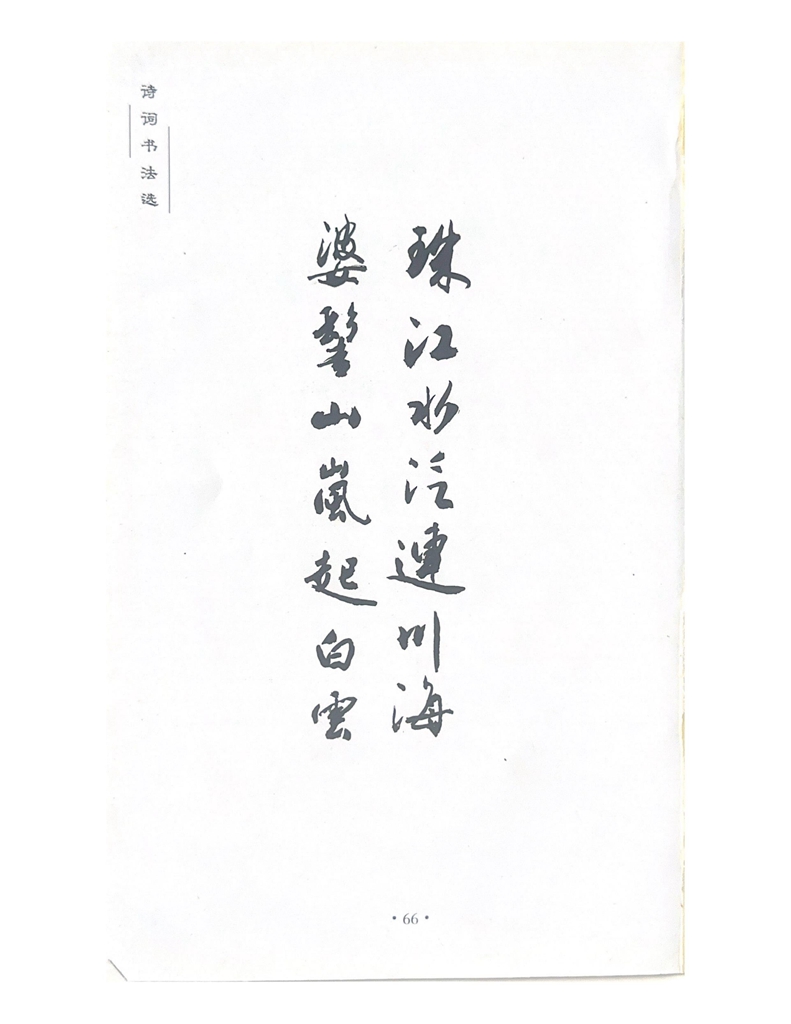 诗词书法选
珠江水泛連川海
婆髻山嵐起白雲
·66·